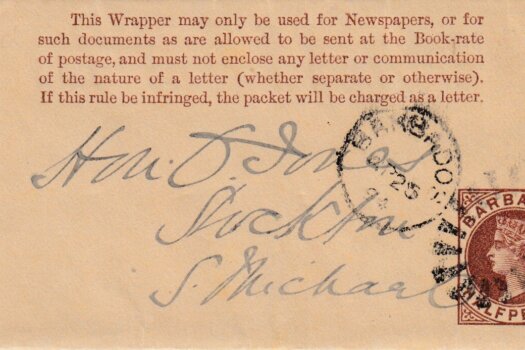 This Wrapper may only be used for Newspapers, or for
such documents as are allowed to be sent at the Book-rate
of postage, and must not enclose any letter or communication
of the nature of a letter (whether separate or otherwise).
If this rule be infringed, the packet will be charged as a letter.
Hon. Jones
S. Michael
BARBADO
25
BARBA
HALFPE